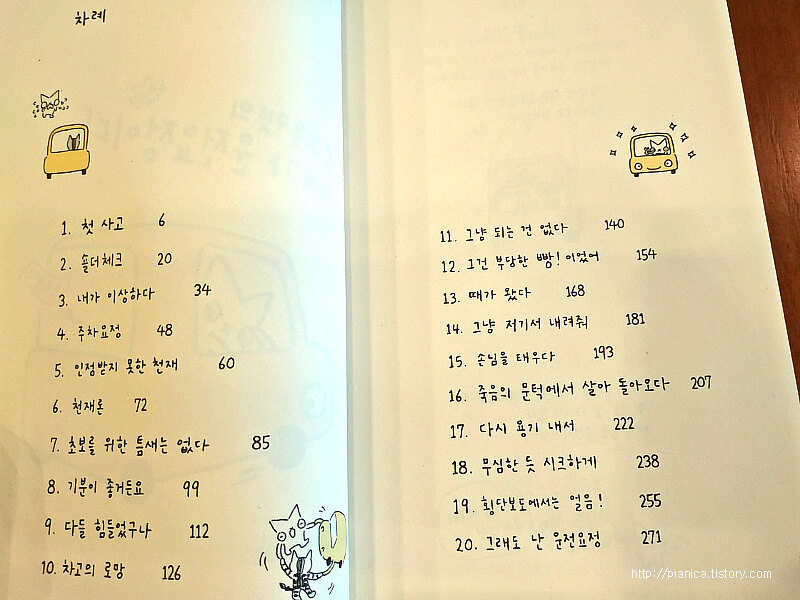 차례
1. 첫 사고 6
2. 숄더체크 20
3. 내가 이상하다 34
4. 주차요정 48
5. 인정받지 못한 천재 60
6. 천재론 72
7. 초보를 위한 틈새는 없다 85
8. 기분이 좋거든요 99
9. 다들 힘들었구나 112
10. 차고의 로망 126
11. 그냥 되는 건 없다 140
12. 그건 부당한 빵! 이었어 154
13. 때가 왔다 168
14. 그냥 저기서 내려줘 181
15. 손님을 태우다 193
16. 죽음의 문턱에서 살아 돌아오다 207
17. 다시 용기 내서 222
18. 무심한 듯 시크하게 238
19. 횡단보도에서는 얼음! 255
20. 그래도 난 운전요정 271
http://pianica.tistory.com